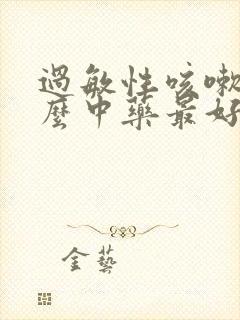 過敏性咳嗽
麼中藥最好
金藝